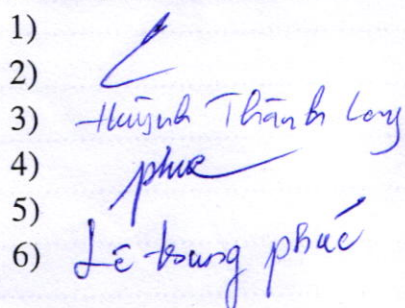 1)
2)
3) Huỳnh Thành Long
4) phúc
5)
6) Lê trung phúc